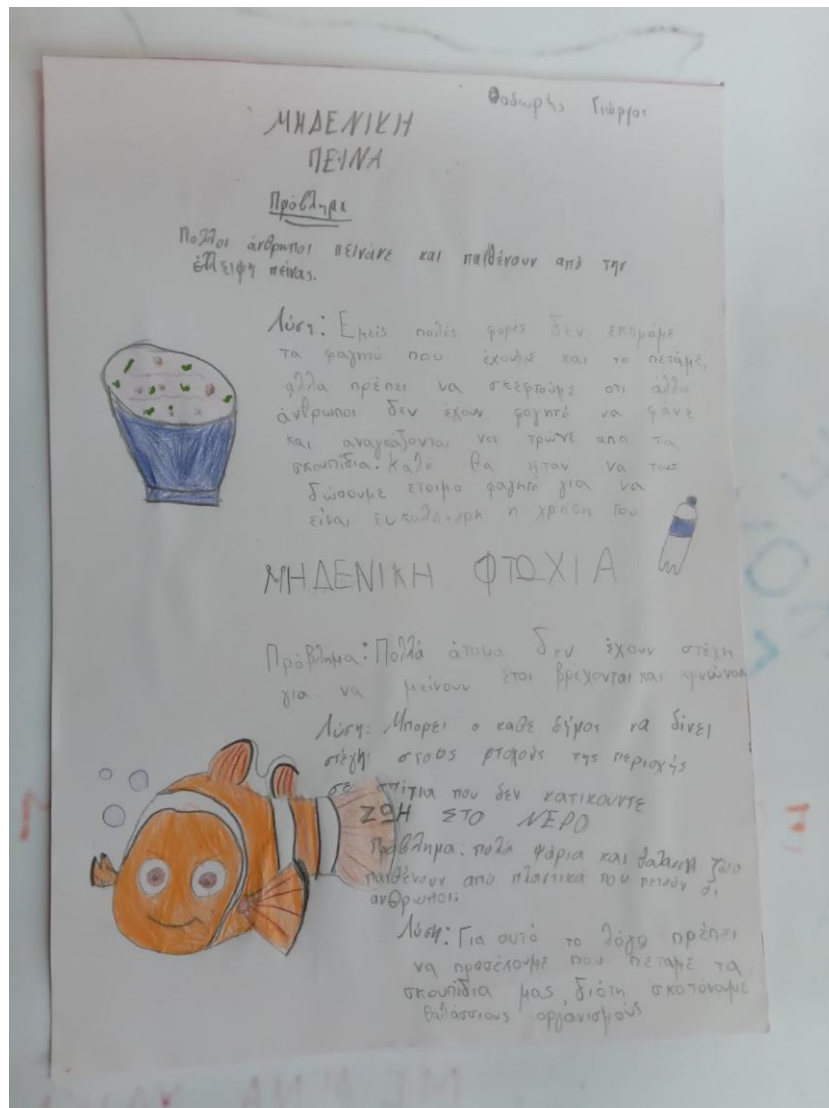 Θοδωρής Γιώργος
ΜΗΔΕΝΙΚΗ
ΠΕΙΝΑ
Πρόβλημα
Πολλοι άνθρωποι πεινάνε και παιθένουν από την
έλλειψη πείνας.
Λύση: Εμείς πολές φορές δεν εκτιμάμε
τα φαγητό που έχουμε και το πετάμε,
αλλα πρέπει να σκεφτούμε οτι άλλα
άνθρωποι δεν έχουν φαγητό να φάνε
και αναγκάζονται να τρώνε απο τα
σκουπίδια. Καλό θα ήταν να τους
δώσουμε έτοιμο φαγητό για να
είναι ευκολότερη η χρήση του
ΜΗΔΕΝΙΚΗ ΦΤΩΧΙΑ
Πρόβλημα: Πολλά άτομα δεν έχουν στέγη
για να μείνουν έτσι βρέχονται και κρυώνουν
Λύση: Μπορεί ο καθε δήμος να δίνει
στέγη στους φτοχούς της περιοχής
σε σπίτια που δεν κατικουντε
ΖΩΗ ΣΤΟ ΝΕΡΟ
Πρόβλημα: πολά ψάρια και θαλασσια ζώα
παιθένουν από πλαστικά που πετάν οι
ανθρωποι.
Λύση: Για αυτό το λόγο πρέπει
να προσέχουμε που πεταμε τα
σκουπίδια μας, διότη σκοτόνουμε
θαλάσσιους οργανισμούς